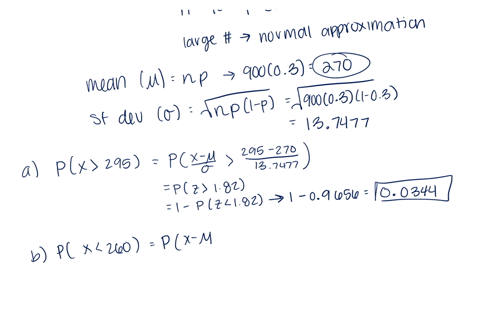 large # → normal approximation
mean (μ) = np → 900(0.3) = 270
st dev (σ) = √np(1-p) = √900(0.3)(1-0.3)
= 13.7477
a) P(x > 295) = P(x-μ/σ > 295-270/13.7477)
= P(z > 1.82)
= 1 - P(z < 1.82) → 1 - 0.9656 = 0.0344
b) P( x < 260) = P(x-μ